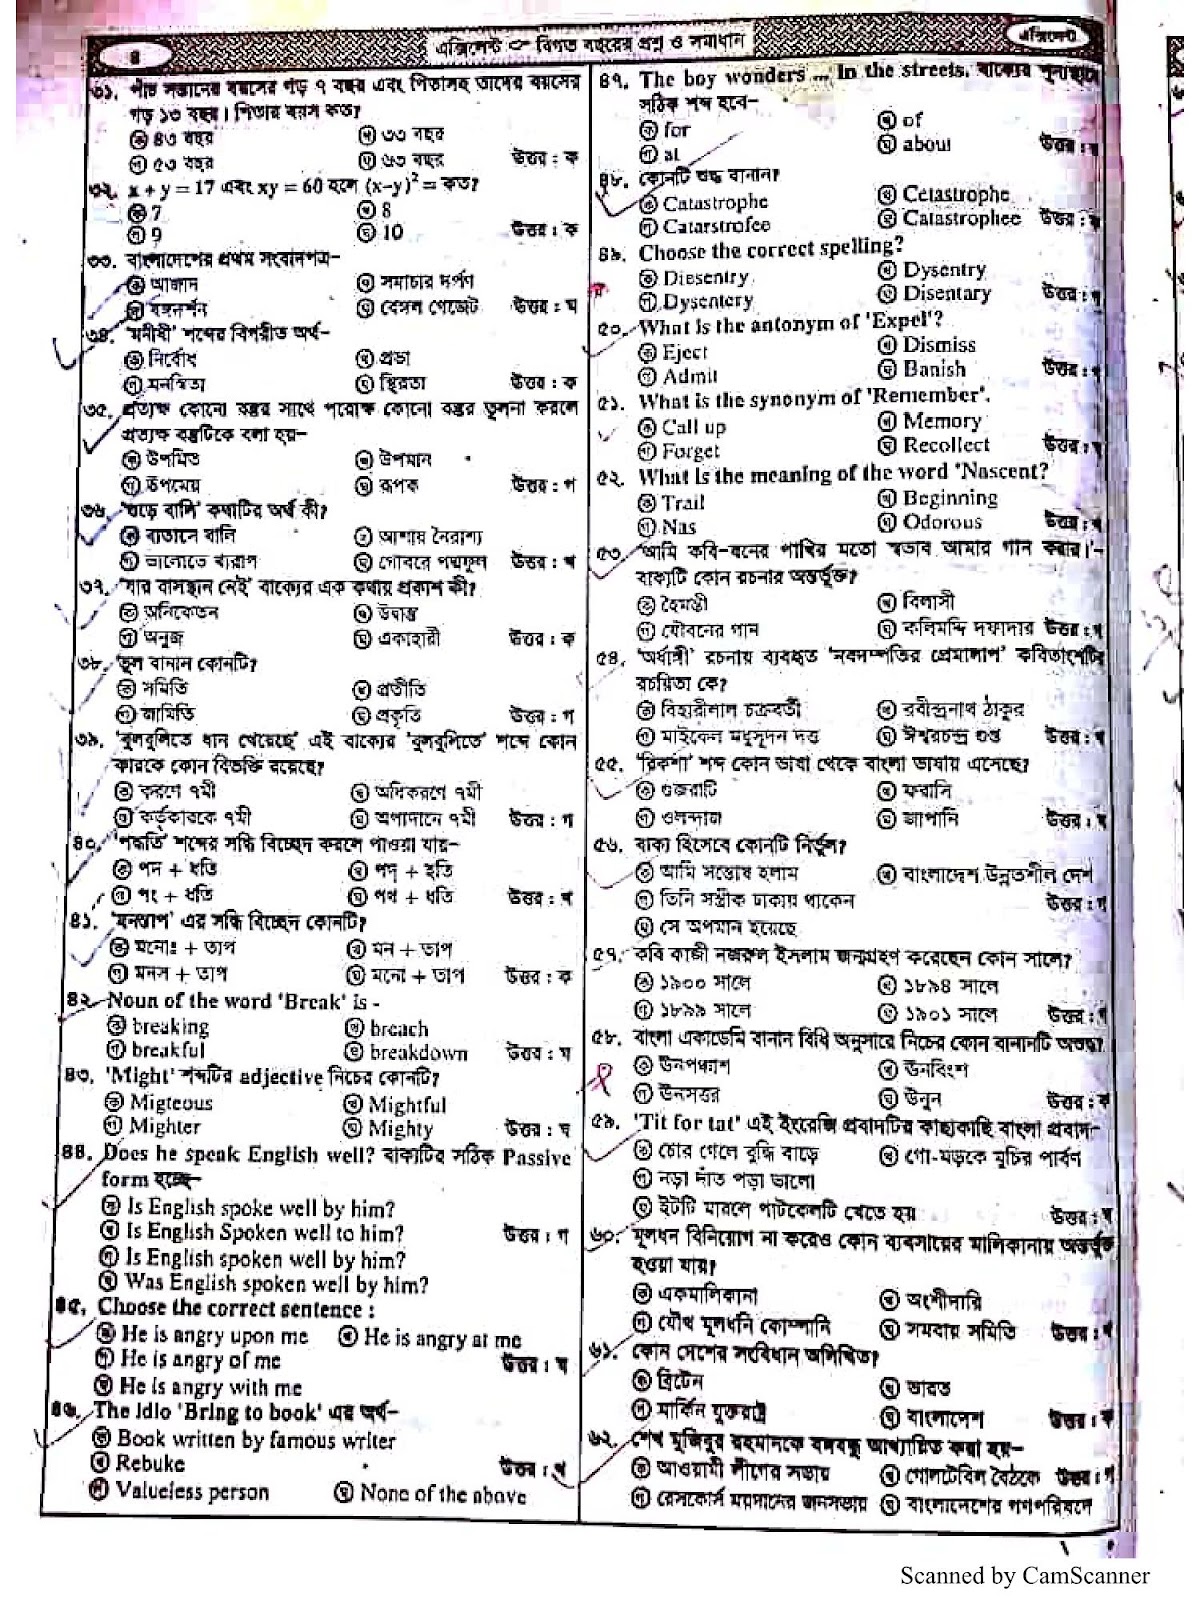 ৪
এক্সিলেন্ট বিগত বছরের প্রশ্ন ও সমাধান
এক্সিলেন্ট
৩১. পাঁচ সন্তানের বয়সের গড় ৭ বছর এবং পিতাসহ তাদের বয়সের
গড় ১৩ বছর। পিতার বয়স কত?
ক ৪৩ বছর খ ৩৩ বছর
গ ৫৩ বছর ঘ ৬৩ বছর উত্তর : ক
৩২. x + y = 17 এবং xy = 60 হলে (x-y)² = কত?
ক 7 খ 8
গ 9 ঘ 10 উত্তর : ক
৩৩. বাংলাদেশের প্রথম সংবাদপত্র–
ক আজাদ খ সমাচার দর্পণ
গ বঙ্গদর্শন ঘ বেঙ্গল গেজেট উত্তর : ঘ
৩৪. 'মনীষী' শব্দের বিপরীত অর্থ–
ক নির্বোধ খ প্রভা
গ মনস্বিতা ঘ স্থিরতা উত্তর : ক
৩৫. প্রত্যক্ষ কোনো বস্তুর সাথে পরোক্ষ কোনো বস্তুর তুলনা করলে
প্রত্যক্ষ বস্তুটিকে বলা হয়–
ক উপমিত খ উপমান
গ উপমেয় ঘ রূপক উত্তর : গ
৩৬. 'গুড়ে বালি' কথাটির অর্থ কী?
ক বাতাসে বালি খ আশায় নৈরাশ্য
গ ভালোতে খারাপ ঘ গোবরে পদ্মফুল উত্তর : খ
৩৭. 'যার বাসস্থান নেই' বাক্যের এক কথায় প্রকাশ কী?
ক অনিকেতন খ উদ্বাস্তু
গ অনুজ ঘ একাহারী উত্তর : ক
৩৮. ভুল বানান কোনটি?
ক সমিতি খ প্রতীতি
গ জামিতি ঘ প্রকৃতি উত্তর : গ
৩৯. 'বুলবুলিতে ধান খেয়েছে' এই বাক্যের 'বুলবুলিতে' শব্দে কোন
কারকে কোন বিভক্তি রয়েছে?
ক করণে ৭মী খ অধিকরণে ৭মী
গ কর্তৃকারকে ৭মী ঘ অপাদানে ৭মী উত্তর : গ
৪০. 'পদ্ধতি' শব্দের সন্ধি বিচ্ছেদ করলে পাওয়া যায়–
ক পদ + ধতি খ পদ্ + হতি
গ পৎ + ধতি ঘ পথ + ধতি উত্তর : খ
৪১. 'মনস্তাপ' এর সন্ধি বিচ্ছেদ কোনটি?
ক মনোঃ + তাপ খ মন + তাপ
গ মনস + তাপ ঘ মনো + তাপ উত্তর : ক
৪২. Noun of the word 'Break' is -
ক breaking খ breach
গ breakful ঘ breakdown উত্তর : ঘ
৪৩. 'Might' শব্দটির adjective নিচের কোনটি?
ক Migteous খ Mightful
গ Mighter ঘ Mighty উত্তর : ঘ
৪৪. Does he speak English well? বাক্যটির সঠিক Passive
form হচ্ছে–
ক Is English spoke well by him?
খ Is English Spoken well to him? উত্তর : গ
গ Is English spoken well by him?
ঘ Was English spoken well by him?
৪৫. Choose the correct sentence :
ক He is angry upon me খ He is angry at me
গ He is angry of me উত্তর : ঘ
ঘ He is angry with me
৪৬. The idio 'Bring to book' এর অর্থ–
ক Book written by famous writer
খ Rebuke উত্তর : খ
গ Valueless person ঘ None of the above
৪৭. The boy wonders ... In the streets. বাক্যের শূন্যস্থানে
সঠিক শব্দ হবে–
ক for খ of
গ at ঘ about উত্তর :
৪৮. কোনটি শুদ্ধ বানান?
ক Catastrophe খ Cetastrophe
গ Catarstrofee ঘ Catastrophee উত্তর :
৪৯. Choose the correct spelling?
ক Diesentry খ Dysentry
গ Dysentery ঘ Disentary উত্তর :
৫০. What is the antonym of 'Expel'?
ক Eject খ Dismiss
গ Admit ঘ Banish উত্তর :
৫১. What is the synonym of 'Remember'.
ক Call up খ Memory
গ Forget ঘ Recollect উত্তর :
৫২. What is the meaning of the word 'Nascent?
ক Trail খ Beginning
গ Nas ঘ Odorous উত্তর :
৫৩. 'আমি কবি-বনের পাখির মতো স্বভাব আমার গান করার।'–
বাক্যটি কোন রচনার অন্তর্ভুক্ত?
ক হৈমন্তী খ বিলাসী
গ যৌবনের গান ঘ কলিমদ্দি দফাদার উত্তর : গ
৫৪. 'অর্ধাঙ্গী' রচনায় ব্যবহৃত 'নবদম্পতির প্রেমালাপ' কবিতাংশটির
রচয়িতা কে?
ক বিহারীলাল চক্রবর্তী খ রবীন্দ্রনাথ ঠাকুর
গ মাইকেল মধুসূদন দত্ত ঘ ঈশ্বরচন্দ্র গুপ্ত উত্তর : খ
৫৫. 'রিকশা' শব্দ কোন ভাষা থেকে বাংলা ভাষায় এসেছে?
ক গুজরাটি খ ফরাসি
গ ওলন্দাজ ঘ জাপানি উত্তর : ঘ
৫৬. বাক্য হিসেবে কোনটি নির্ভুল?
ক আমি সন্তোষ হলাম খ বাংলাদেশ উন্নতশীল দেশ
গ তিনি সস্ত্রীক ঢাকায় থাকেন উত্তর : গ
ঘ সে অপমান হয়েছে
৫৭. কবি কাজী নজরুল ইসলাম জন্মগ্রহণ করেছেন কোন সালে?
ক ১৯০০ সালে খ ১৮৯৪ সালে
গ ১৮৯৯ সালে ঘ ১৯০১ সালে উত্তর : গ
৫৮. বাংলা একাডেমি বানান বিধি অনুসারে নিচের কোন বানানটি অশুদ্ধ?
ক উনপঞ্চাশ খ ঊনবিংশ
গ উনসত্তর ঘ উনুন উত্তর : ক
৫৯. 'Tit for tat' এই ইংরেজি প্রবাদটির কাছাকাছি বাংলা প্রবাদ–
ক চোর গেলে বুদ্ধি বাড়ে খ গো-মড়কে মুচির পার্বণ
গ নড়া দাঁত পড়া ভালো
ঘ ইটটি মারলে পাটকেলটি খেতে হয় উত্তর : ঘ
৬০. মূলধন বিনিয়োগ না করেও কোন ব্যবসায়ের মালিকানায় অন্তর্ভুক্ত
হওয়া যায়?
ক একমালিকানা খ অংশীদারি
গ যৌথ মূলধনি কোম্পানি ঘ সমবায় সমিতি উত্তর : খ
৬১. কোন দেশের সংবিধান অলিখিত?
ক ব্রিটেন খ ভারত
গ মার্কিন যুক্তরাষ্ট্র ঘ বাংলাদেশ উত্তর : ক
৬২. শেখ মুজিবুর রহমানকে বঙ্গবন্ধু আখ্যায়িত করা হয়–
ক আওয়ামী লীগের সভায় খ গোলটেবিল বৈঠকে উত্তর : গ
গ রেসকোর্স ময়দানের জনসভায় ঘ বাংলাদেশের গণপরিষদে
Scanned by CamScanner